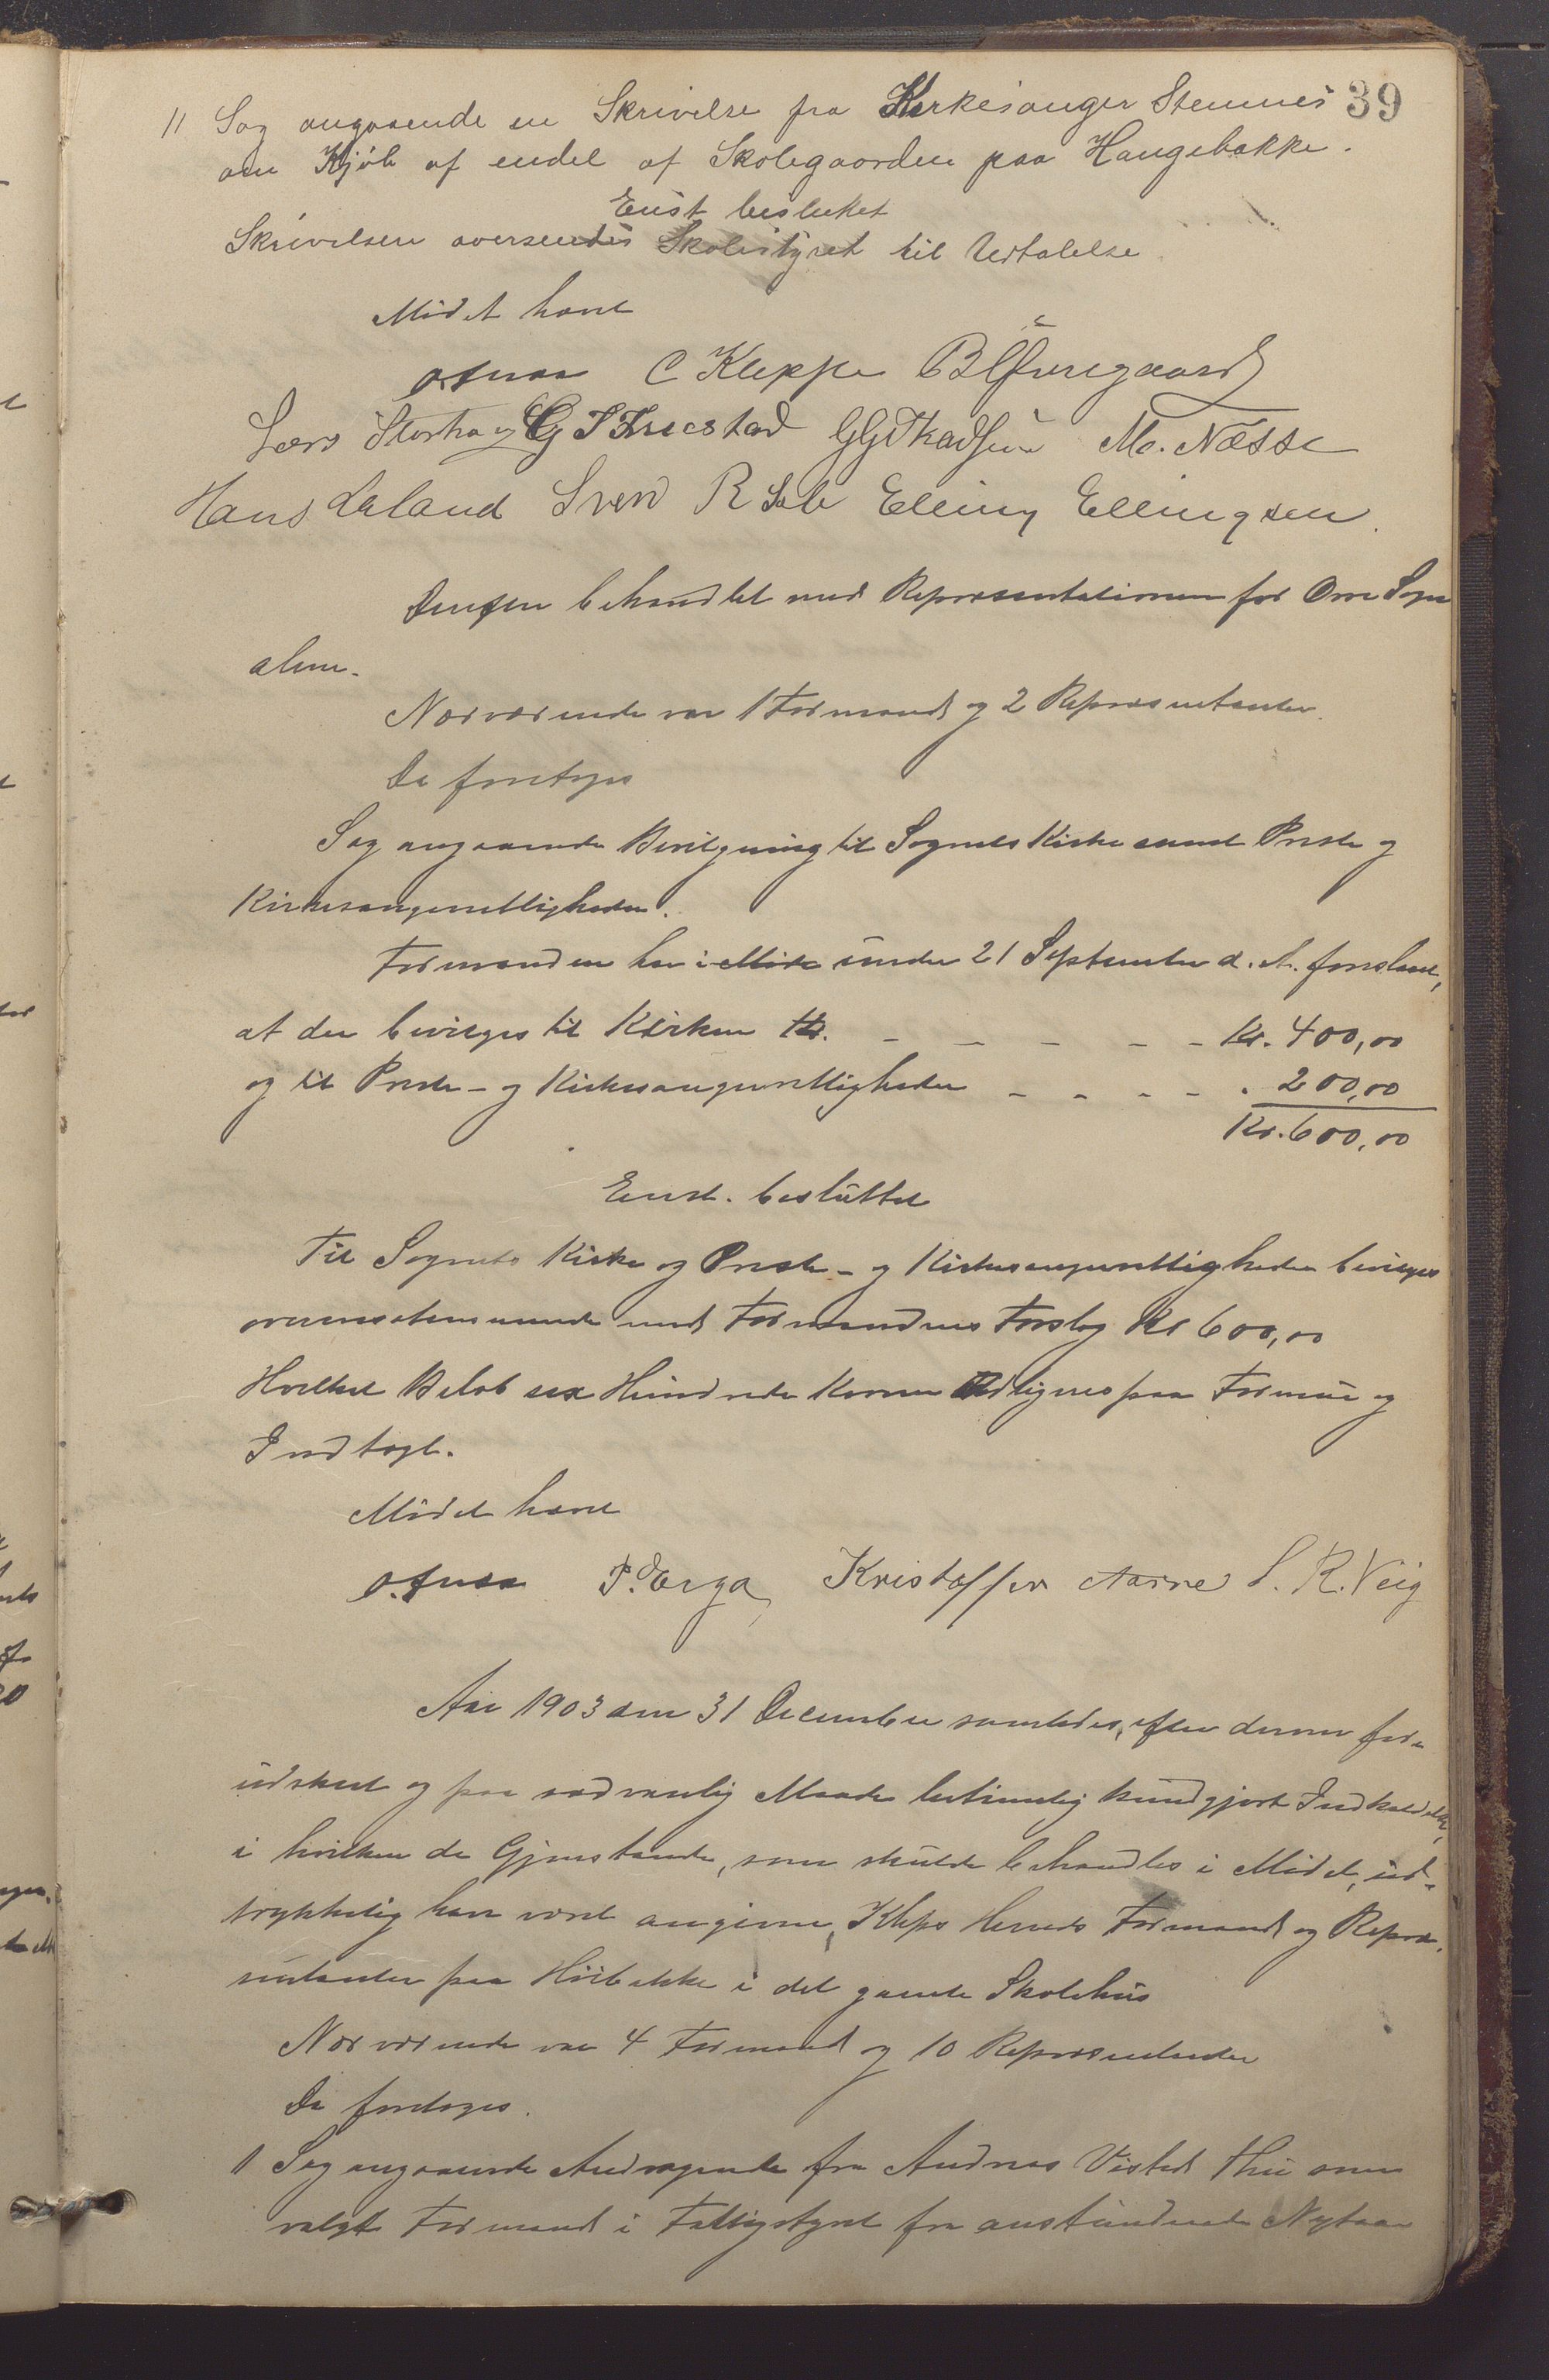 39
11 Sag angaaende en Skrivelse fra Kirkesanger Stennes
om Kjøb af endel af Skolegaarden paa Haugebakke.
Enst besluttet
Skrivelsen oversendes Skolestyret til Udtalelse
Mødet hævet
C Kleppe
Lars Storhaug M. Næsse
Hans Laland Sven R Elling Ellingsen.
behandlet med Repræsentationen for Orre Sogn
alene.
Nærværende var 1 Formand og 2 Repræsentanter.
Da foretoges
Sag angaaende Bevilgning til Sognets Kirke samt Præste og
Kirkesangerrettigheder.
Formanden har i Møde under 21 September d. A. foreslaaet,
at der bevilges til Kirken Kr. – – – – – Kr. 400,00
og til Præste- og Kirkesangerrettigheder – – – – . 200,00
Kr. 600,00
Enst. besluttet
Til Sognets Kirke og Præste- og Kirkesangerrettigheder bevilges
overensstemmende med Formandens Forslag Kr 600,00
Hvilket Beløb sex Hundrede Kroner Udlignes paa Formue og
Indtægt.
Mødet hævet
P. Erga Kristoffer Aarre S. R. Veig
Aar 1903 den 31 December samledes, efter dertil for-
udskeet og paa sædvanlig Maade betimelig kundgjort Indkaldelse,
i hvilken de Gjenstande, som skulde behandles i Mødet, ud-
trykkelig har været angivne, Kleps Herreds Formænd og Repræ-
sentanter paa Høibakke i det gamle Skolehus
Nærværende var 4 Formænd og 10 Repræsentanter
Da foretoges.
1 Sag angaaende Andragende fra Andreas Vistad Thu som
valgt Formand i Fattigstyret fra anstundende Nytaar